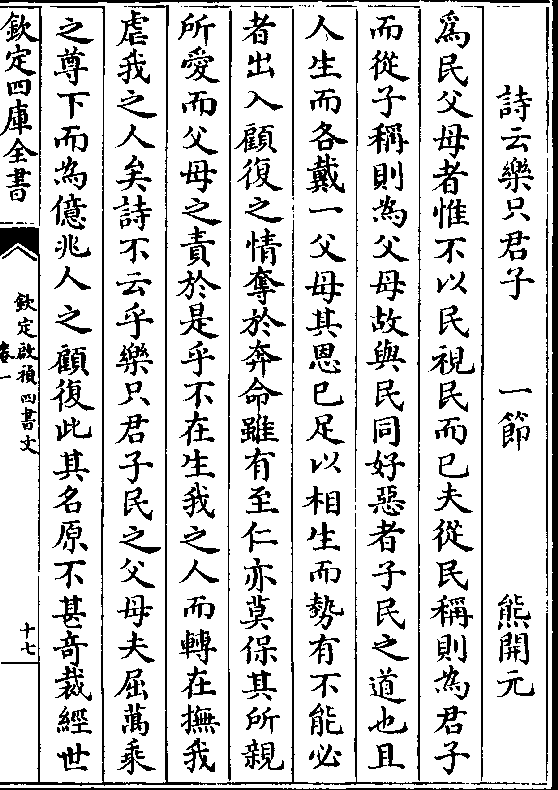 詩云樂只君子　一節　熊開元
爲民父母者惟不以民視民而已夫從民稱則為君子
而從子稱則為父母故與民同好惡者子民之道也且
人生而各戴一父母其恩已足以相生而勢有不能必
者出入顧復之情奪於奔命雖有至仁亦莫保其所親
所愛而父母之責於是乎不在生我之人而轉在撫我
虐我之人矣詩不云乎樂只君子民之父母夫屈萬乘
之尊下而為億兆人之顧復此其名原不甚奇裁經世
欽定四庫全書
欽定啟禎四書文
卷一
十七